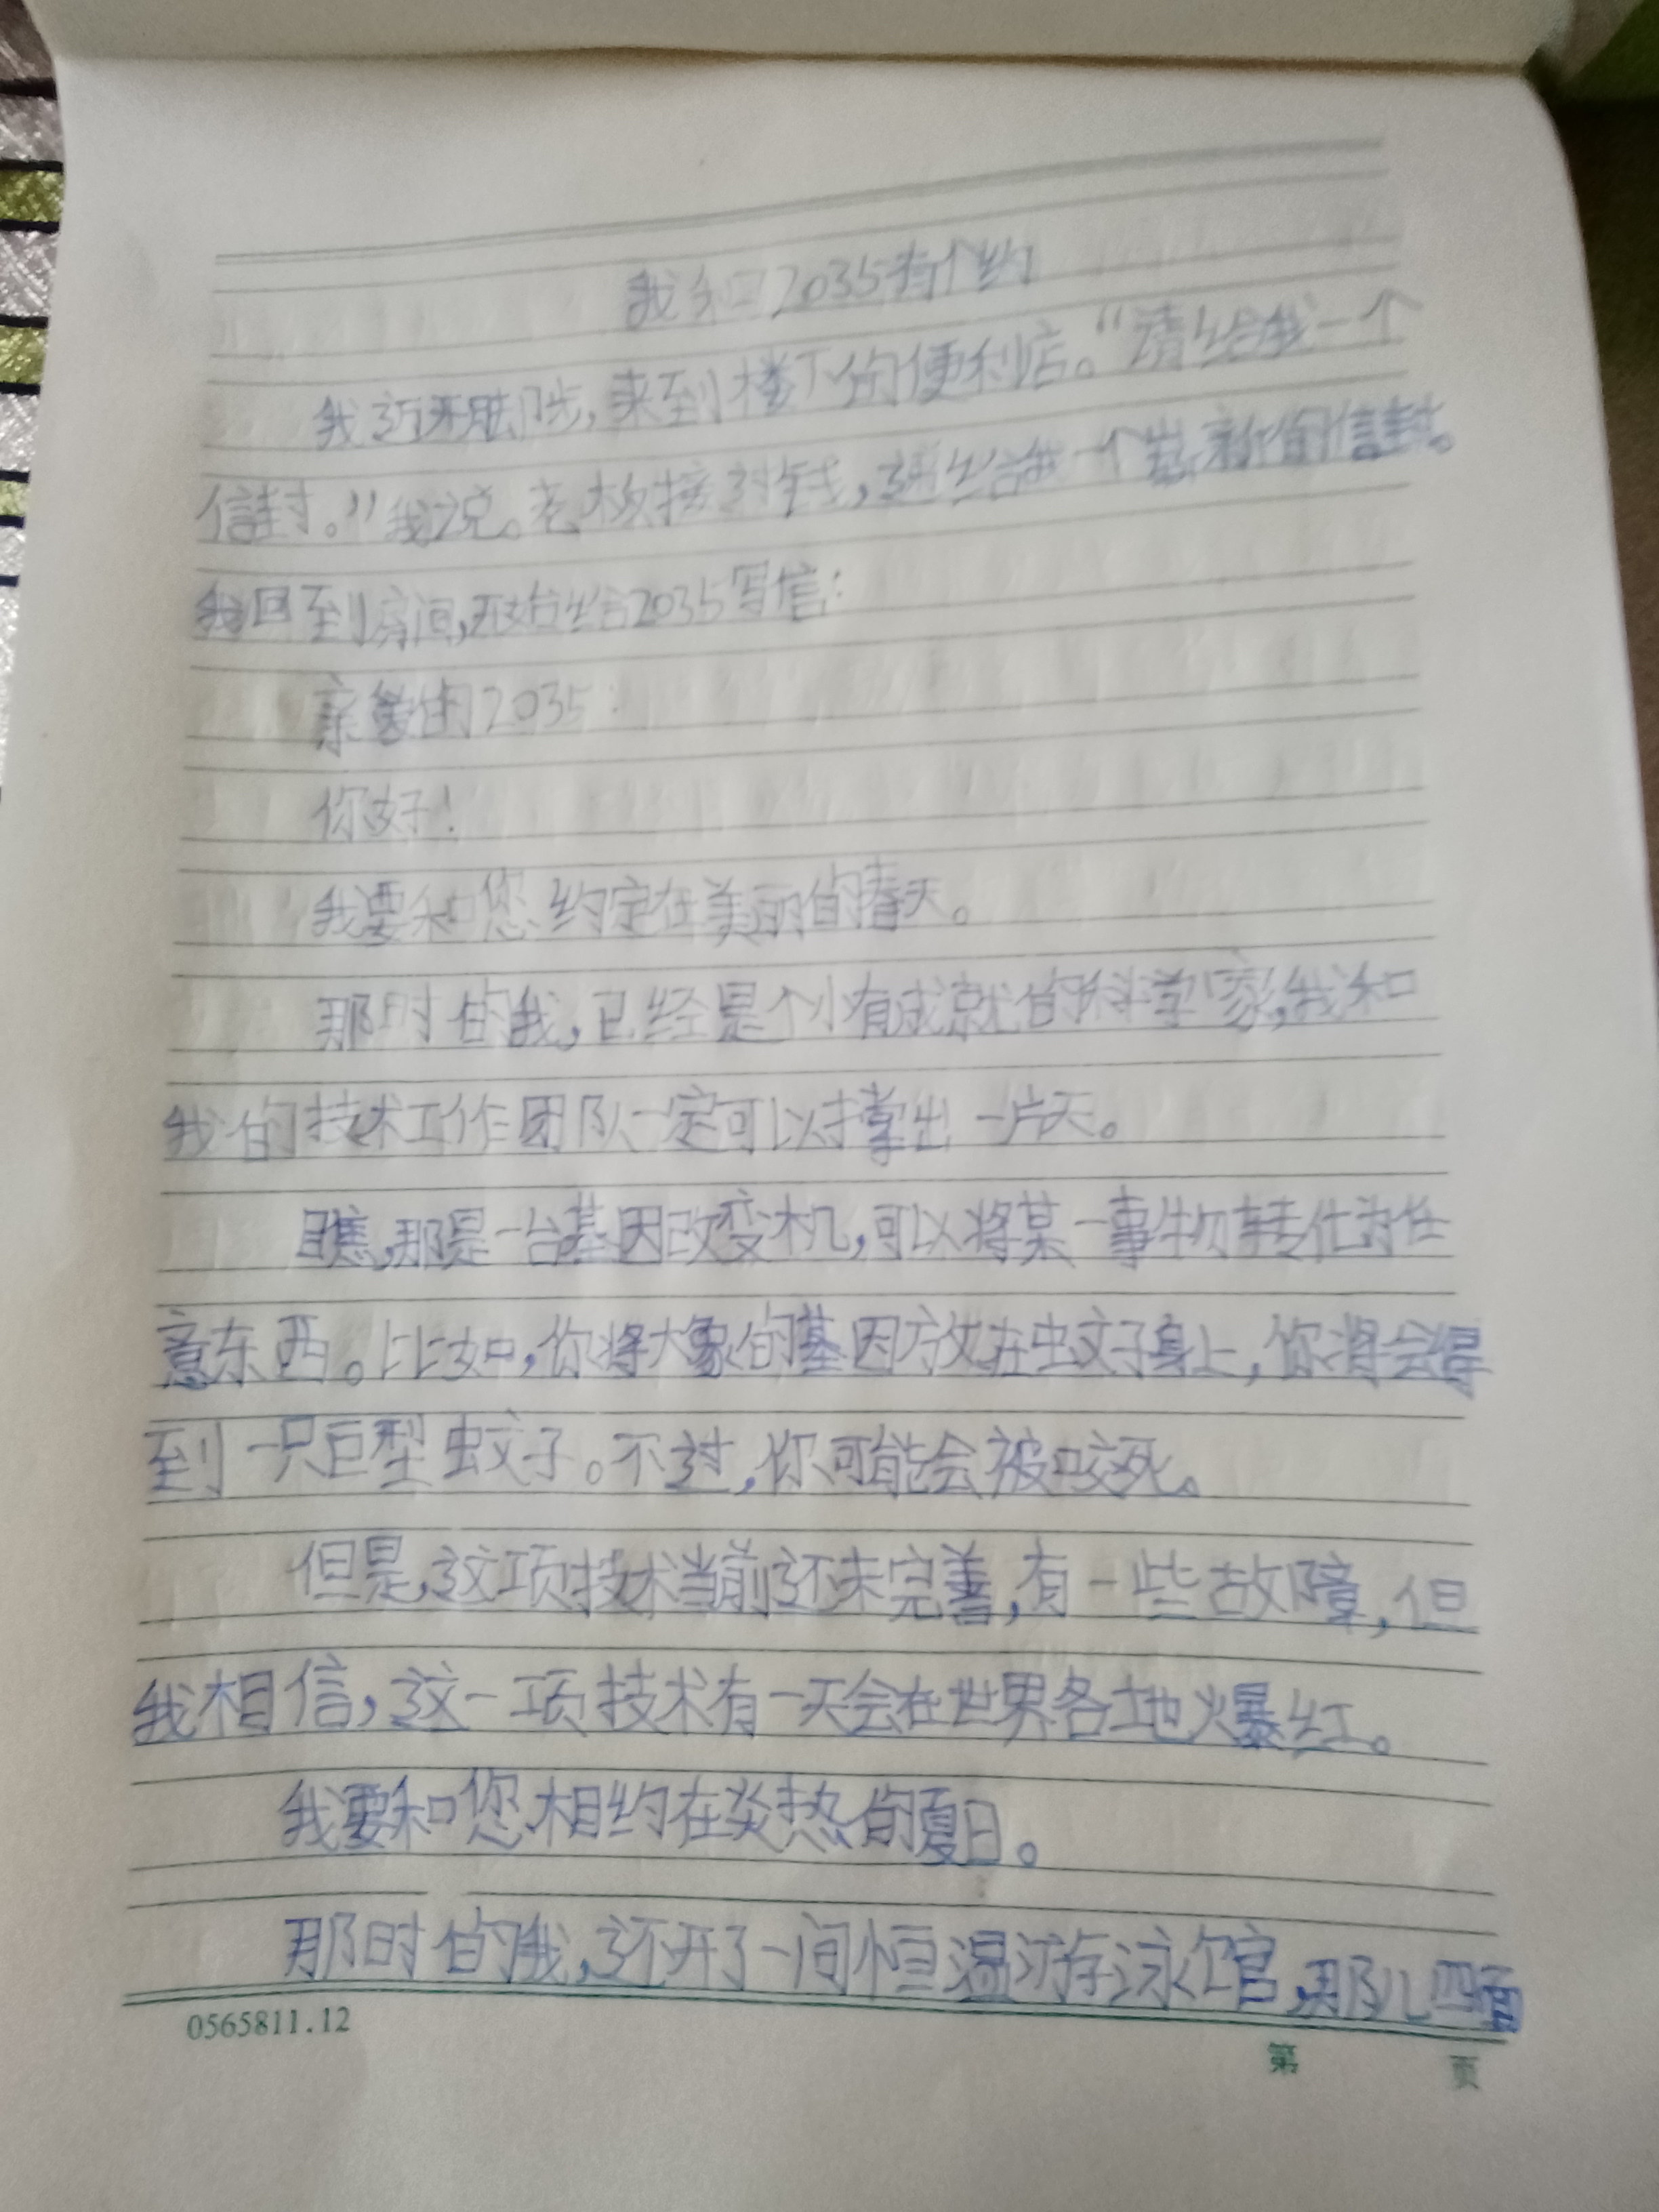 我和2035有个约
我迈开脚步，来到楼下的便利店。“请给我一个
信封。”我说。老板接过钱，递给我一个崭新的信封。
我回到房间，开始给2035写信：
亲爱的2035：
你好！
我要和您约定在美丽的春天。
那时的我，已经是个小有成就的科学家，我和
我的技术工作团队一定可以撑出一片天。
瞧，那是一台基因改变机，可以将某一事物转化为任
意东西。比如，你将大象的基因放在蚊子身上，你将会得
到一只巨型蚊子。不过，你可能会被咬死。
但是，这项技术当前还未完善，有一些故障，但
我相信，这一项技术有一天会在世界各地火爆红。
我要和您相约在炎热的夏日。
那时的我，还开了一间恒温游泳馆，那儿四面
0565811.12
第 页